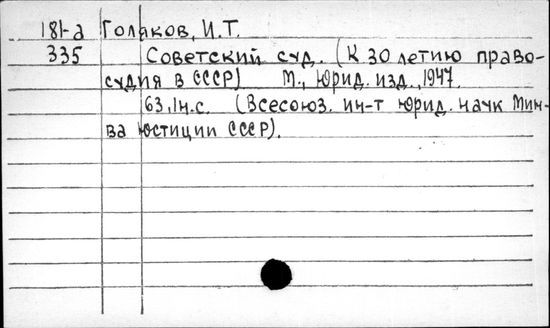 181-а Голяков, И.Т.
335 Советский суд. (К 30 летию право-
судия в СССР) М., Юрид. изд., 1947.
63,1н.с. (Всесоюз. ин-т юрид. наук Мин-
ва юстиции СССР).